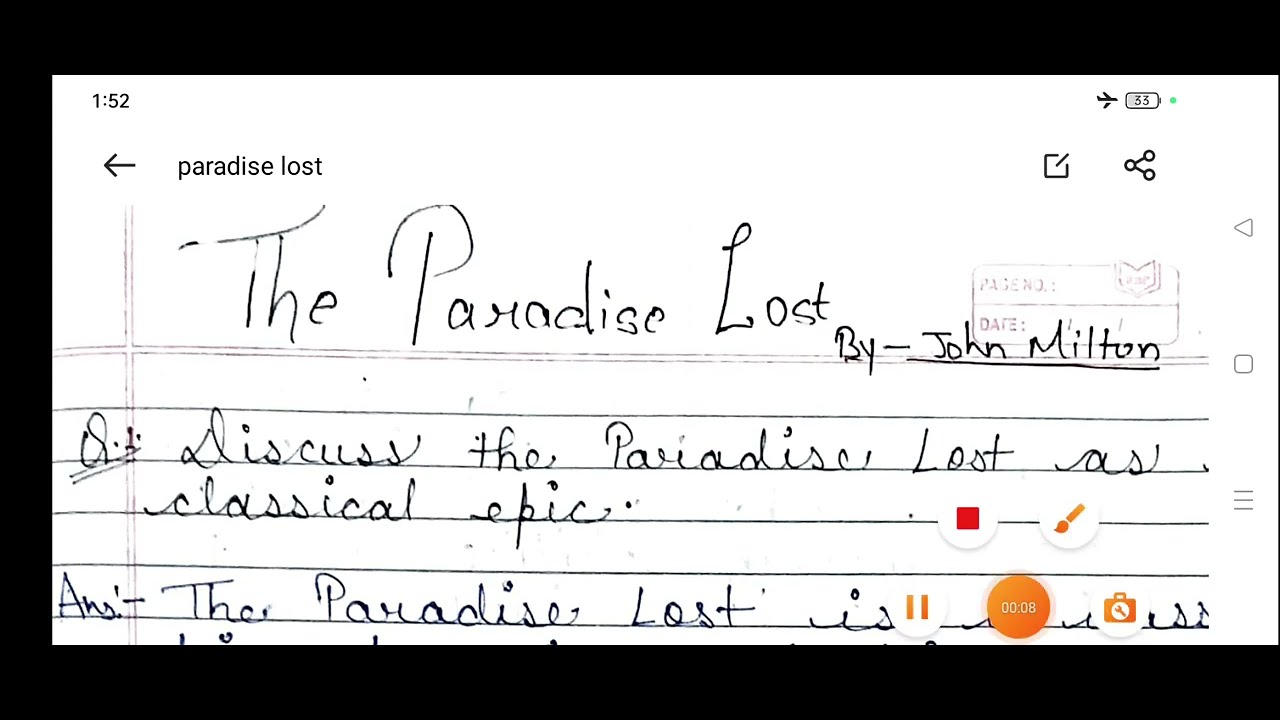 1:52
33
paradise lost
The Paradise Lost
PAGE NO.:
DATE: / /
By - John Milton
Q.1 Discuss the Paradise Lost as
classical epic.
Ans:- The Paradise Lost is
00:08